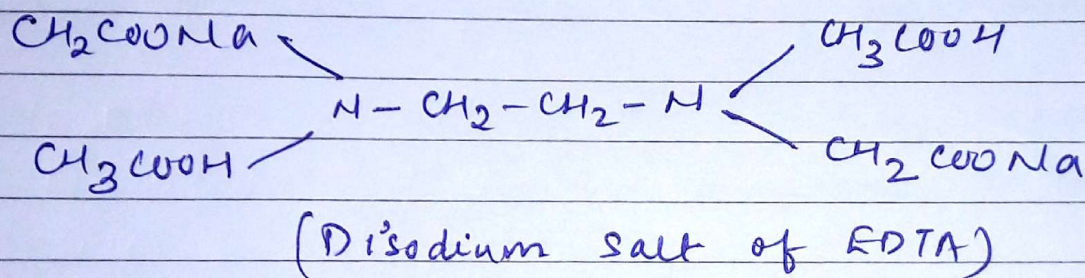 CH₂COONa CH₃COOH
N - CH₂ - CH₂ - N
CH₃COOH CH₂COONa
(Disodium salt of EDTA)